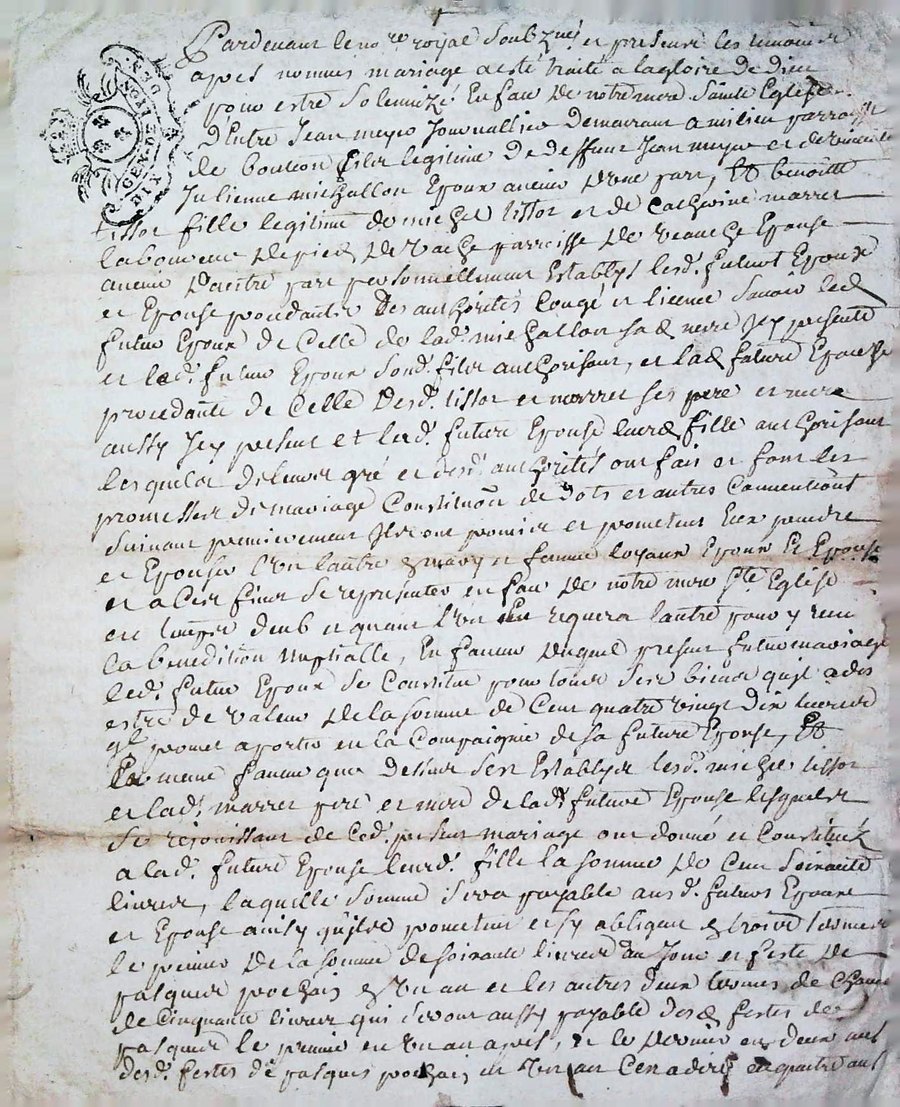 GEN. DE LYON
DIX
Pardevant le no.re royal Soubz.né et presens les temoins
apres nommes mariage a esté traité a la gloire de dieu
pour estre Solemnizé En face de notre mere Sainte Eglise
D'Entre Jean Journallier Demeurant a milieu parroisse
de filz legitime de deffunt Jean et de
Jullienne michallon Epoux avenir d'une part, Et benoitte
tissot fille legitime de michel tissot et de Catherine marret
laboureur parroisse de Epouse
avenir D'autre part personnellement Establys lesd. futurs Epoux
et Epouse procedants Des authorités Congé et licence Savoir led
futur Epoux de Celle de lad. michallon sad mere Jcy presente
et led. futur Epoux Sond. filz authorisant, et lad future Epouse
procedante de Celle Desd. tissot et marret ses pere et mere
aussy Jcy presents et lad. future Epouse leurd fille authorisant
lesquels de leur gré et desd. authorités ont fait et font les
promesses de mariage Constitution de dots et autres Conventions
Suivant premierement Jlz ont promis et prometent Eux prendre
et Epouser l'un l'autre mary et femme loyaux Epoux Et Epouse
et a Ces fins Se representer en face de notre mere Ste Eglise
en temps deub et quant l'Un En requera l'autre pour y recu
la benedition Nuptialle, En faveur Duquel present futur mariage
led. futur Epoux Se Constitue pour tous Ses biens qu'il a dit
estre de valeur De la somme de Cent quatre vingt Dix livres
ql. promet aporter en la Compaignie de sa future Epouse, Et
En meme faveur que Dessus Sen Establys lesd. michel tissot
et lad. marret pere et mere de lad. future Epouse lesquels
Se rejouissant de Ced. present mariage ont donné et Constitué
a lad. future Epouse leurd. fille la somme de Cent Soixante
livres, laquelle Somme Sera payable ausd. futurs Epoux
et Epouse ainsy qu'ilz prometent et sy obligent trois termes
le premier De la somme de soixante livres au Jour et feste de
pasques prochain En Un an et les autres deux termes de Chacun
de Cinquante livres qui Seront aussy payable Desd festes de
pasques le premier en Un an apres, Et le dernier en deux ans
desd. festes de pasques prochain en Un an C'est a dire en quatre ans